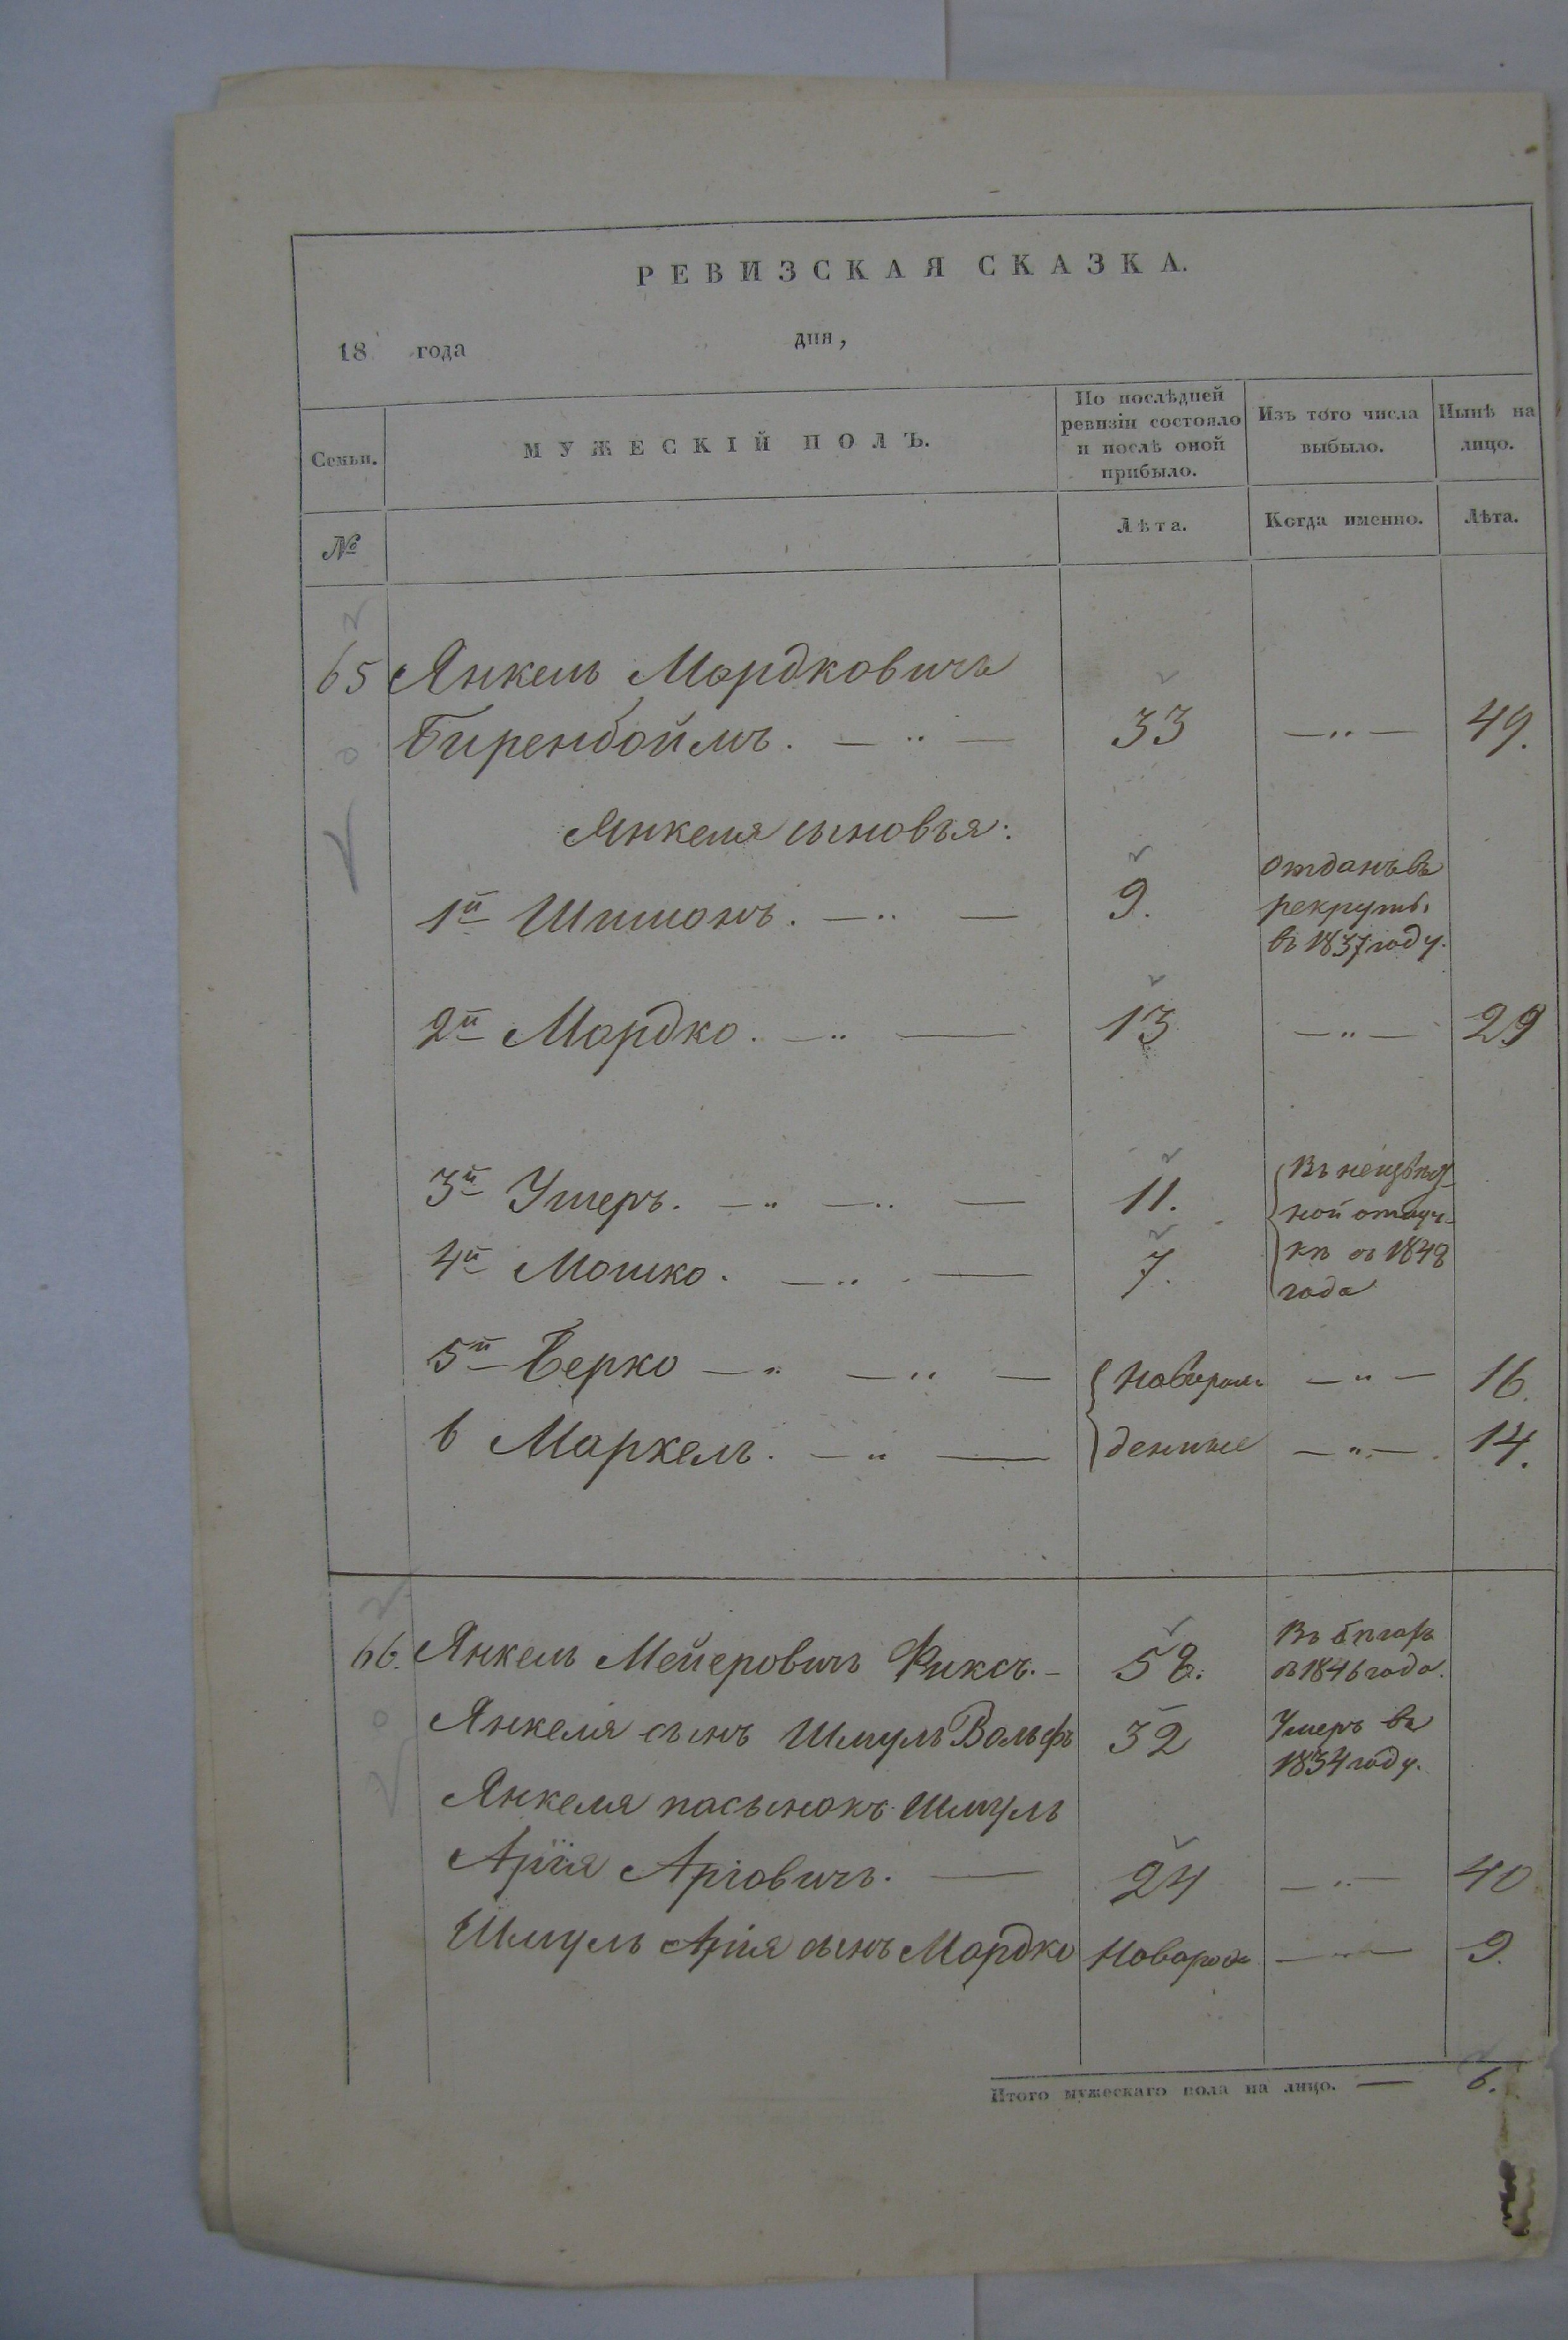 РЕВИЗСКАЯ СКАЗКА.
18 года дня,
Семьи. МУЖЕСКІЙ ПОЛЪ. По послѣдней ревизіи состояло и послѣ оной прибыло. Изъ того числа выбыло. Нынѣ на лицо.
№ Лѣта. Когда именно. Лѣта.
65 Янкель Мордковичъ
Биренбоймъ. — " — 33 — " — 49.
Янкеля сыновья:
1й Шимонъ. — " — 9. отданъ въ рекруты въ 1837 году.
2й Мордко. — " — 13 — " — 29
3й Ушеръ. — " — " — 11. Въ неизвѣст-
ной отлуч-
4й Мошко. — " — 7. кѣ съ 1848
года
5й Берко — " — " — новорож- — " — 16.
6 Маркель. — " — денные — " — 14.
66. Янкель Мейеровичъ Фиксъ. — 58. Въ бѣгахъ съ 1846 года.
Янкеля сынъ Шмуль Вольфъ 32 Умеръ въ 1834 году.
Янкеля пасынокъ Шмуль
Арія Аріовичъ. — 24 — " — 40
Шмуль Арія сынъ Мордко Новорож — " — 9.
Итого мужескаго пола на лицо. — 6.